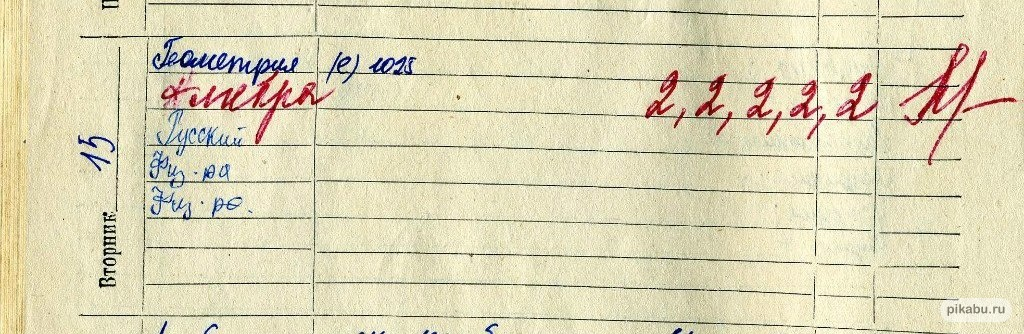 Вторник
15
Геометрия (е) 1025
Алгебра 2, 2, 2, 2, 2
Русский
Физ-ра
Физ-ра.
pikabu.ru